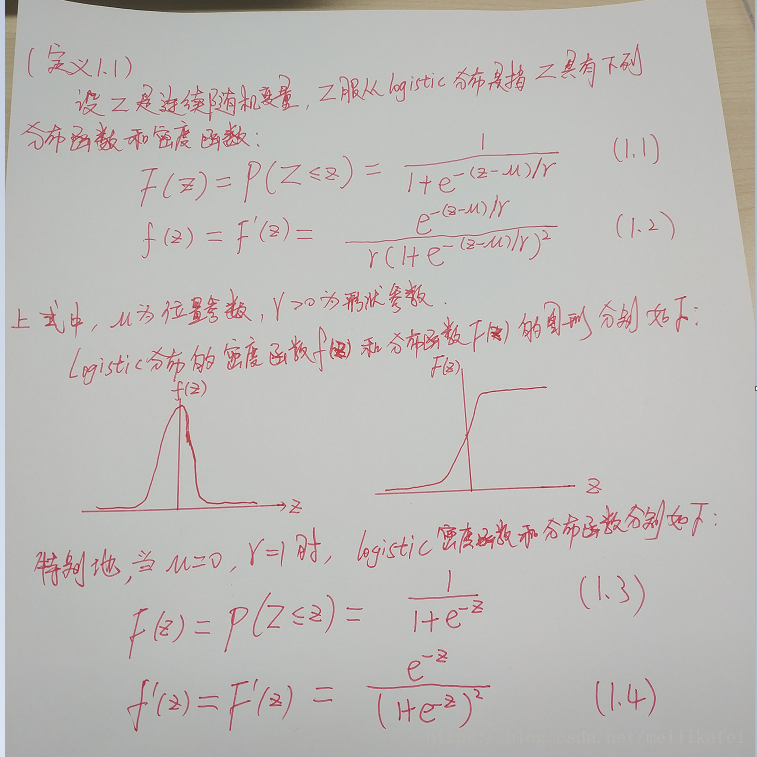 (定义1.1)
设Z是连续随机变量,Z服从logistic分布是指Z具有下列
分布函数和密度函数:
F(z) = P(Z≤z) = 1/(1+e^{-(z-μ)/γ}) (1.1)
f(z) = F'(z) = e^{-(z-μ)/γ}/(γ(1+e^{-(z-μ)/γ})^2) (1.2)
上式中,μ为位置参数,γ>0为形状参数.
Logistic分布的密度函数f(z)和分布函数F(z)的图形分别如下:
f(z) F(z)
z z
特别地,当μ=0,γ=1时,logistic密度函数和分布函数分别如下:
F(z) = P(Z≤z) = 1/(1+e^{-z}) (1.3)
f'(z) = F'(z) = e^{-z}/(1+e^{-z})^2 (1.4)